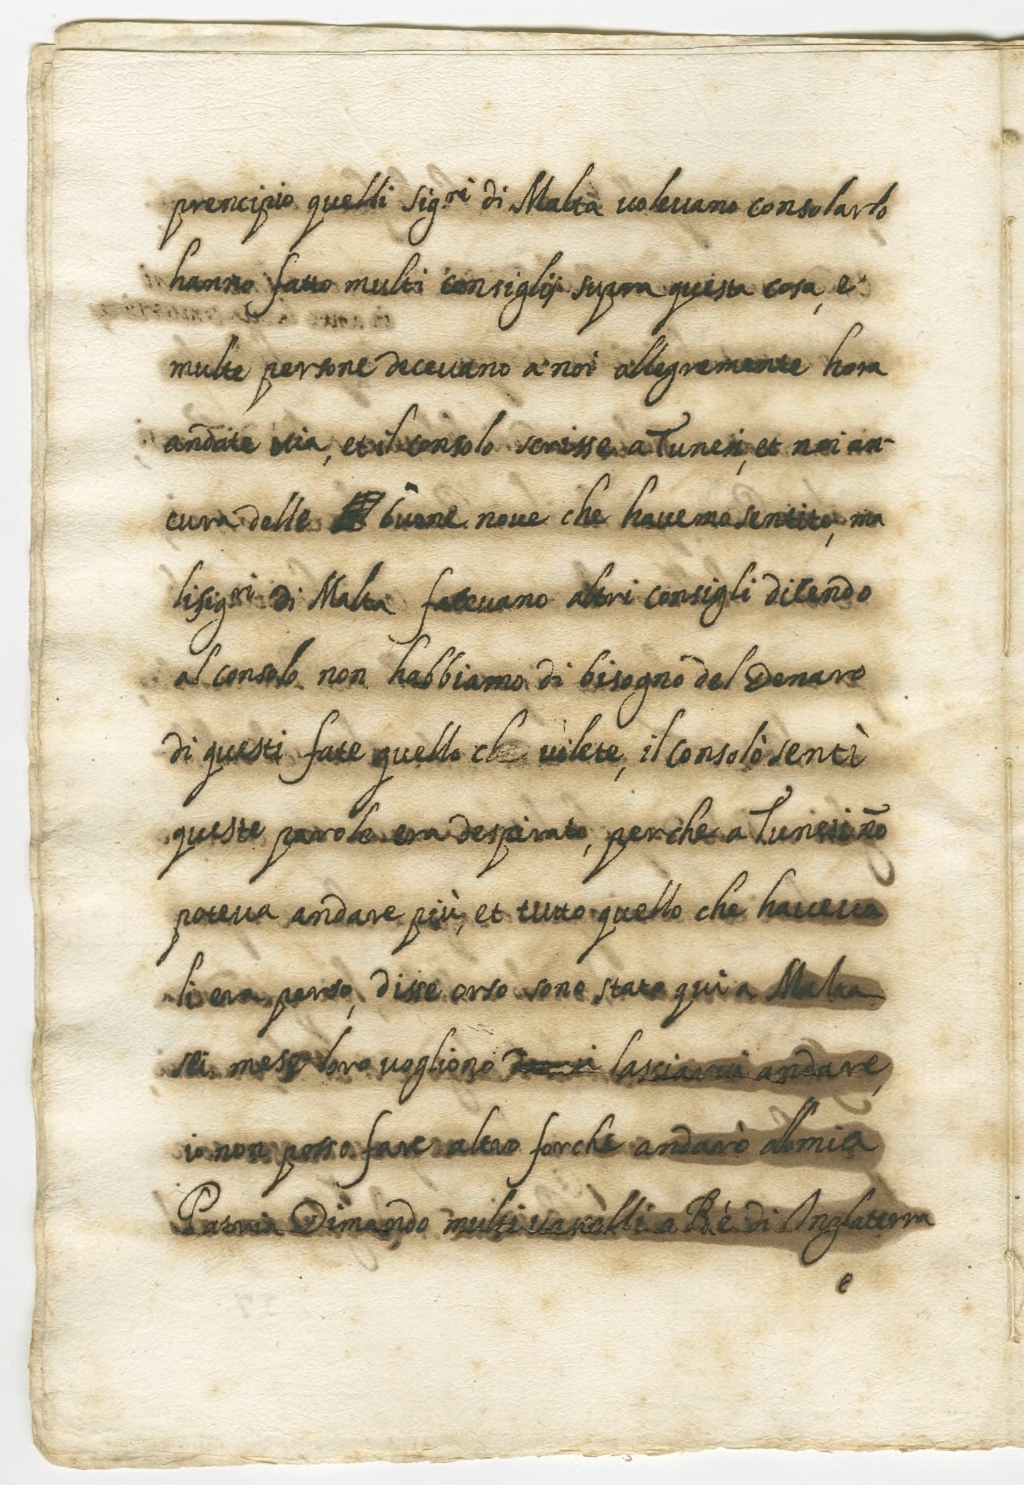 prencipio quelli sig.ri di Malta uoleuano consolarlo
hanno fatto multi consiglij supra questa cosa, e
multe persone deceuano a noi allegremente hora
andate uia, et il consolo scrisse a Tunesi, et noi an-
cura delle buone noue che hauemo sentito, ma
li sig.ri di Malta faceuano altri consigli dicendo
al consolo non habbiamo di bisogno del Denaro
di questi fate quello che uolete, il consolo sentì
queste parole era despirato, perche a Tunesi nō
poteua andare più, et tutto quello che haueua
li era perso, disse orso sono stato qui a Malta
sei mese loro uogliono lasciarui andare,
io non posso fare altro forche andarò alla mia
Patria Dimando multi uascelli a Rè di Inglaterra
e